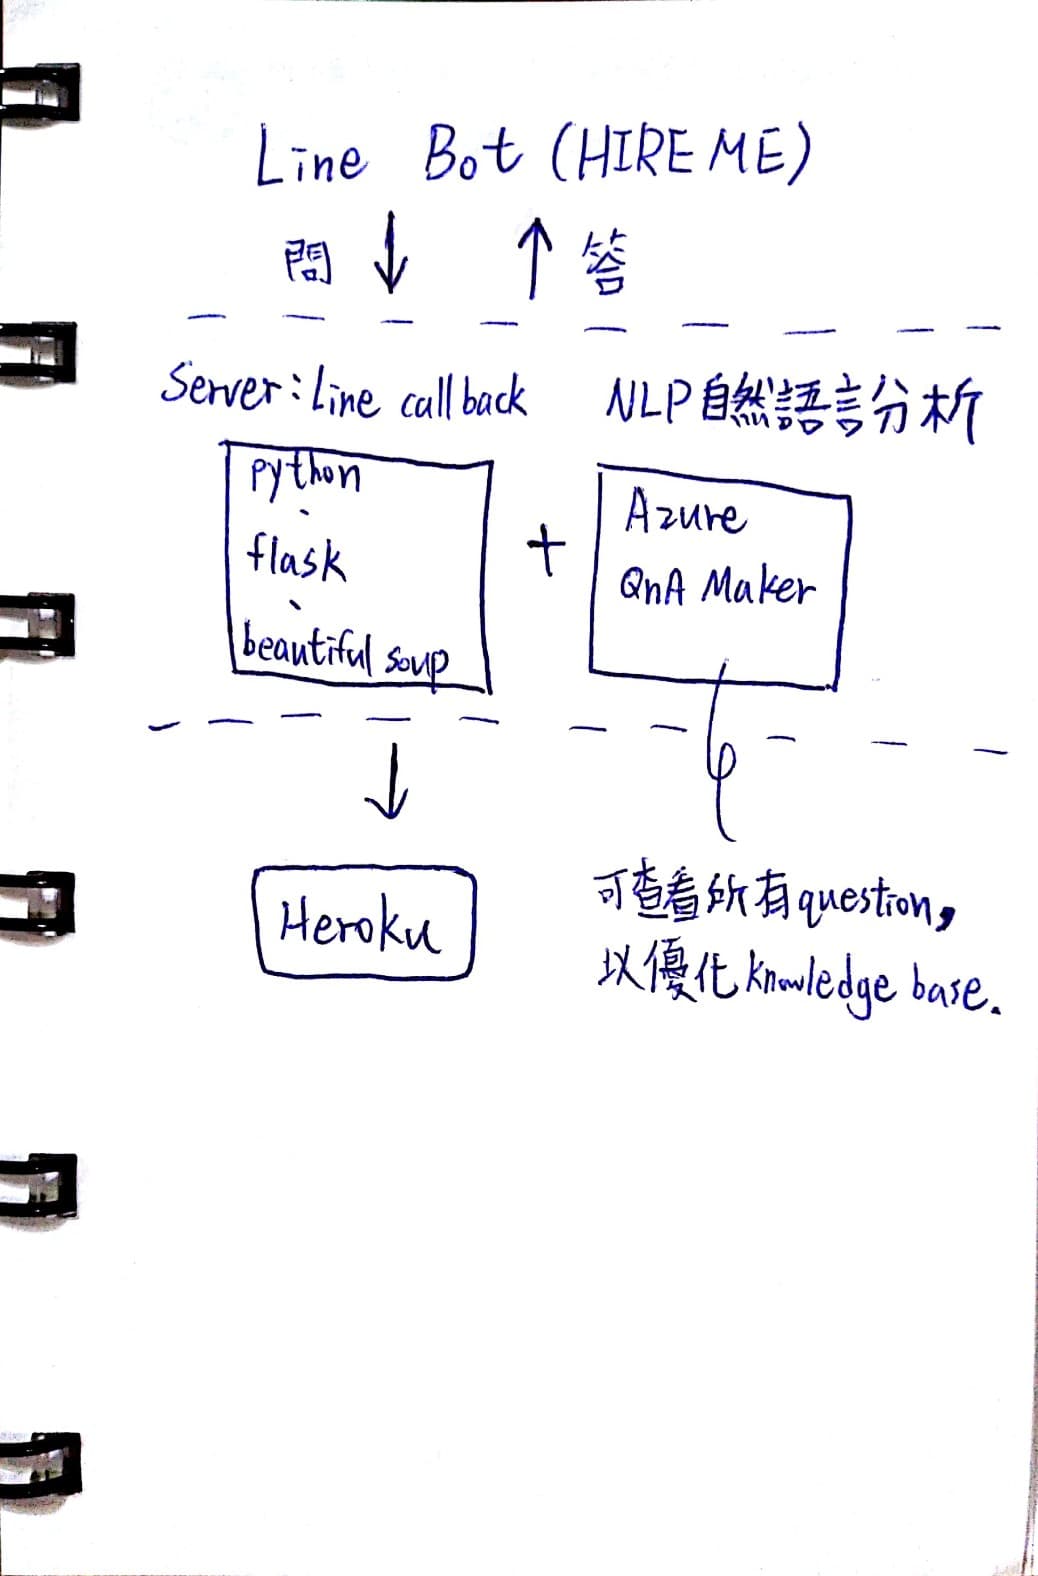 Line Bot (HIRE ME)
問 ↓ ↑ 答
Server: Line callback
NLP自然語言分析
python、
flask、
beautiful soup
+
Azure
QnA Maker
↓
Heroku
可查看所有question,
以優化knowledge base.